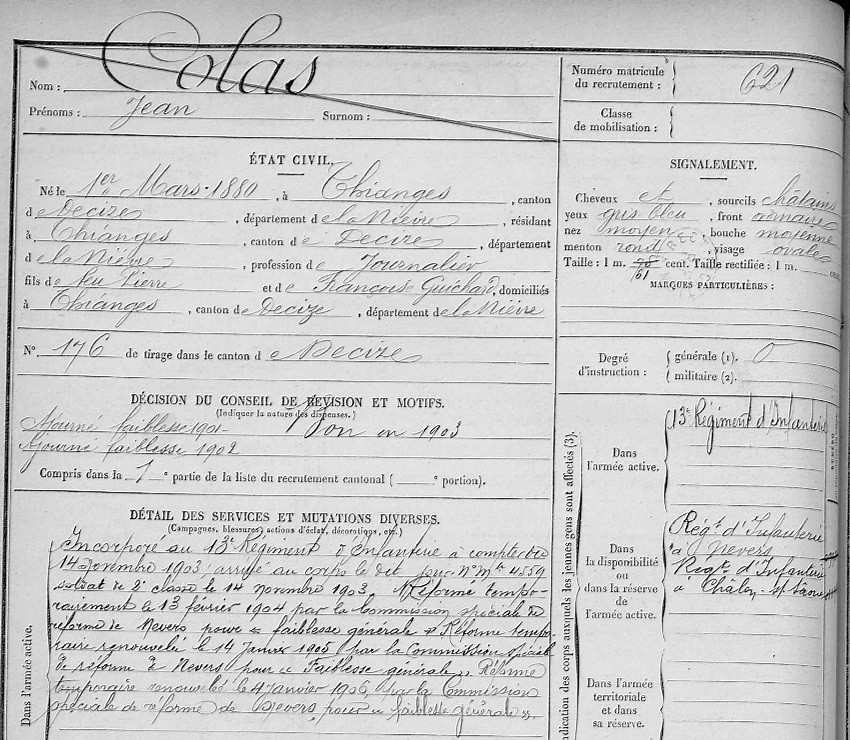 Nom : Colas
Prénoms : Jean Surnom :
ÉTAT CIVIL.
Né le 1er Mars 1880, à Thianges, canton
de Decize, département de la Nièvre, résidant
à Thianges, canton de Decize, département
de la Nièvre, profession de Journalier
fils de feu Pierre et de Françoise Guichard, domiciliés
à Thianges, canton de Decize, département de la Nièvre
N° 176 de tirage dans le canton de Decize
DÉCISION DU CONSEIL DE RÉVISION ET MOTIFS.
(Indiquer la nature des dispenses.)
Ajourné faiblesse 1901 Bon en 1903
Ajourné faiblesse 1902
Compris dans la 1e partie de la liste du recrutement cantonal ( e portion).
DÉTAIL DES SERVICES ET MUTATIONS DIVERSES.
(Campagnes, blessures, actions d'éclat, décorations, etc.)
Dans l'armée active.
Incorporé au 13e Régiment d'Infanterie à compter du
14 Novembre 1903, arrivé au corps le dit jour, N° Mle 4559
soldat de 2e classe le 14 novembre 1903. Réformé tempo-
rairement le 13 février 1904 par la Commission spéciale de
réforme de Nevers pour « faiblesse générale » Réforme tempo-
raire renouvelée le 14 Janvier 1905 par la Commission spéciale
de réforme de Nevers pour « Faiblesse générale » Réforme
temporaire renouvelée le 4 Janvier 1906, par la Commission
spéciale de réforme de Nevers, pour « faiblesse générale ».
Numéro matricule
du recrutement : 621
Classe
de mobilisation :
SIGNALEMENT.
Cheveux et, sourcils châtains
yeux gris bleu, front ordinaire
nez moyen, bouche moyenne
menton rond, visage ovale
Taille : 1 m. 70 cent. Taille rectifiée : 1 m. cent.
61
MARQUES PARTICULIÈRES :
Degré
d'instruction :
générale (1). 0
militaire (2).
indication des corps auxquels les jeunes gens sont affectés (3).
Dans
l'armée active.
13e Régiment d'Infanterie
Dans
la disponibilité
ou
dans la réserve
de
l'armée active.
Régt d'Infanterie
à Nevers
Régt d'Infanterie
à Châlon-s/-Saône
Dans l'armée
territoriale
et dans
sa réserve.